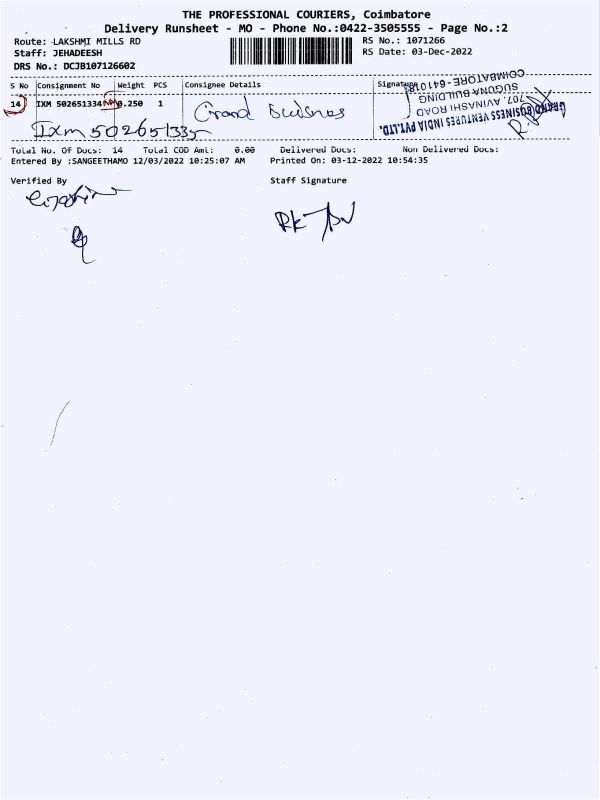 THE PROFESSIONAL COURIERS, Coimbatore
Delivery Runsheet - MO - Phone No.:0422-3505555 - Page No.:2
Route: LAKSHMI MILLS RD RS No.: 1071266
Staff: JEHADEESH RS Date: 03-Dec-2022
DRS No.: DCJB107126602
S No Consignment No Weight PCS Consignee Details Signature
14 IXM 502651334 0.250 1 Grand
Ixm 502651335
GRAND BUSINESS VENTURES INDIA PVT.LTD.
707, AVINASHI ROAD
SUGUNA BUILDING
COIMBATORE - 641018
Total No. Of Docs: 14 Total COD Amt: 0.00 Delivered Docs: Non Delivered Docs:
Entered By :SANGEETHAMO 12/03/2022 10:25:07 AM Printed On: 03-12-2022 10:54:35
Verified By Staff Signature